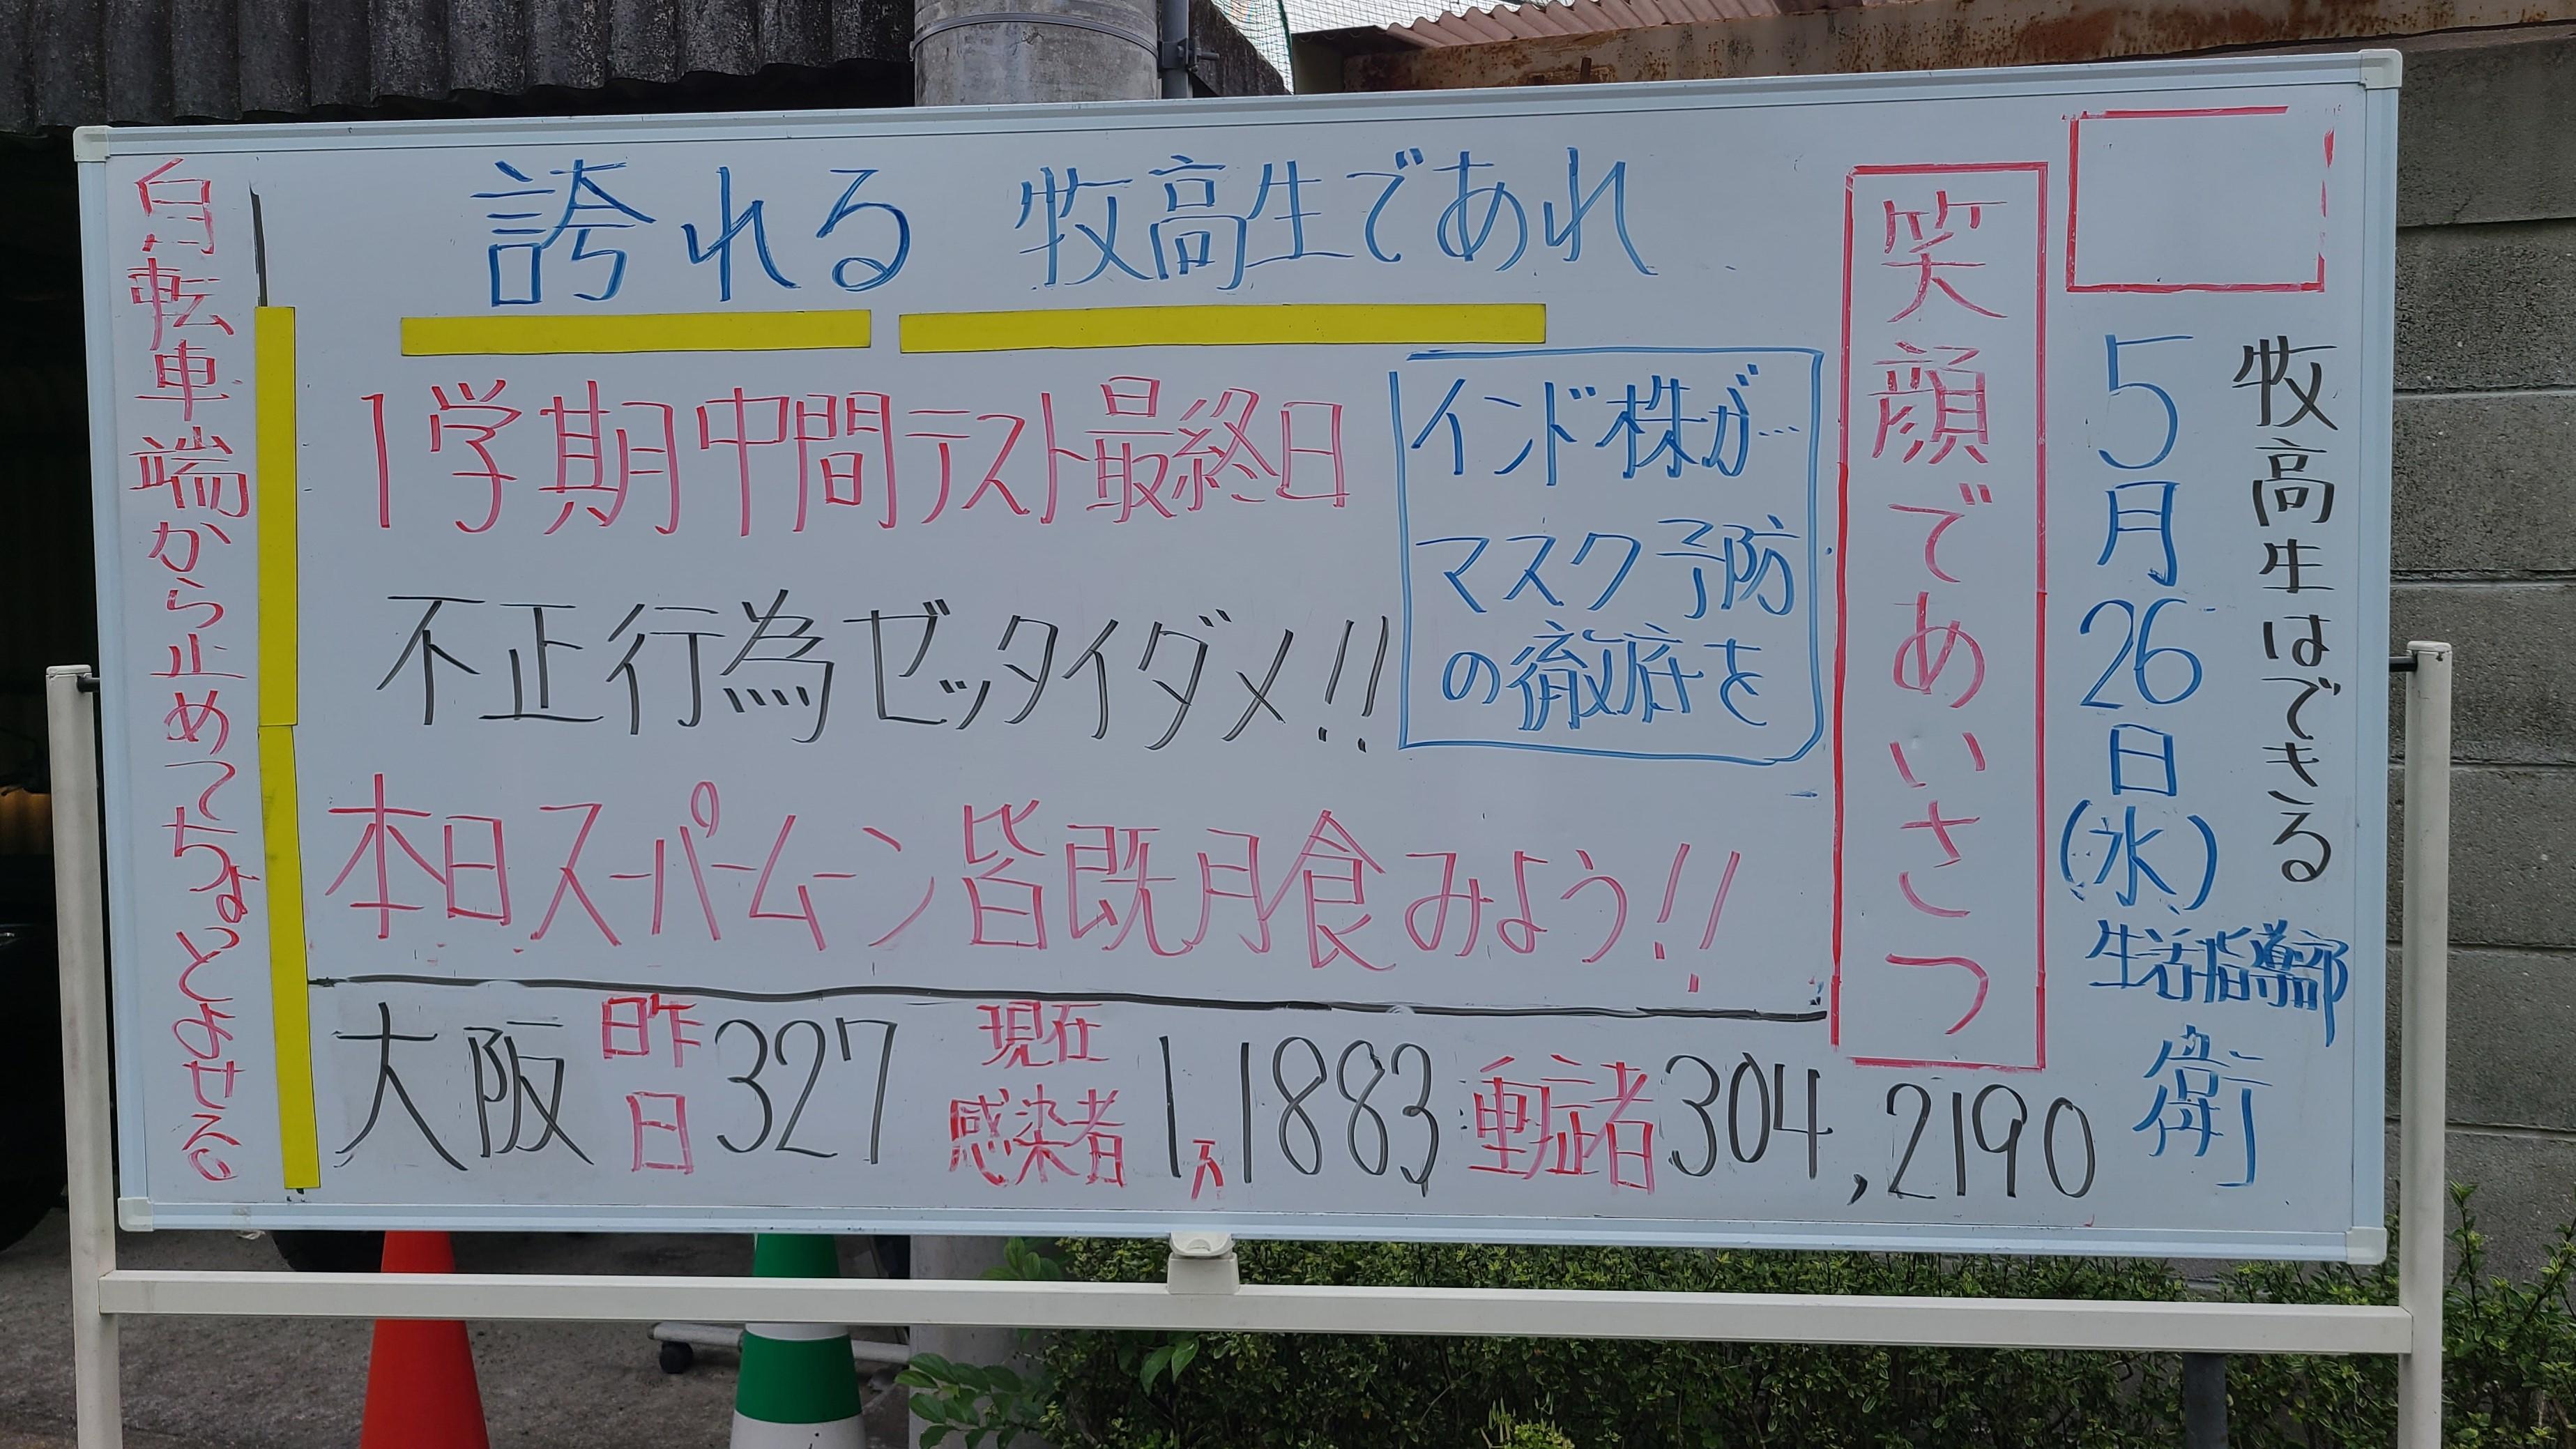 牧高生はできる
5月26日(水)
生活指導部
衛
笑顔であいさつ
誇れる 牧高生であれ
1学期中間テスト最終日
不正行為ゼッタイダメ!!
本日スーパームーン皆既月食みよう!!
インド株が
マスク予防
の徹底を
大阪 昨日 327 現在感染者 1万1883 重症者 304,2190
自転車端から止めてちょとよせる